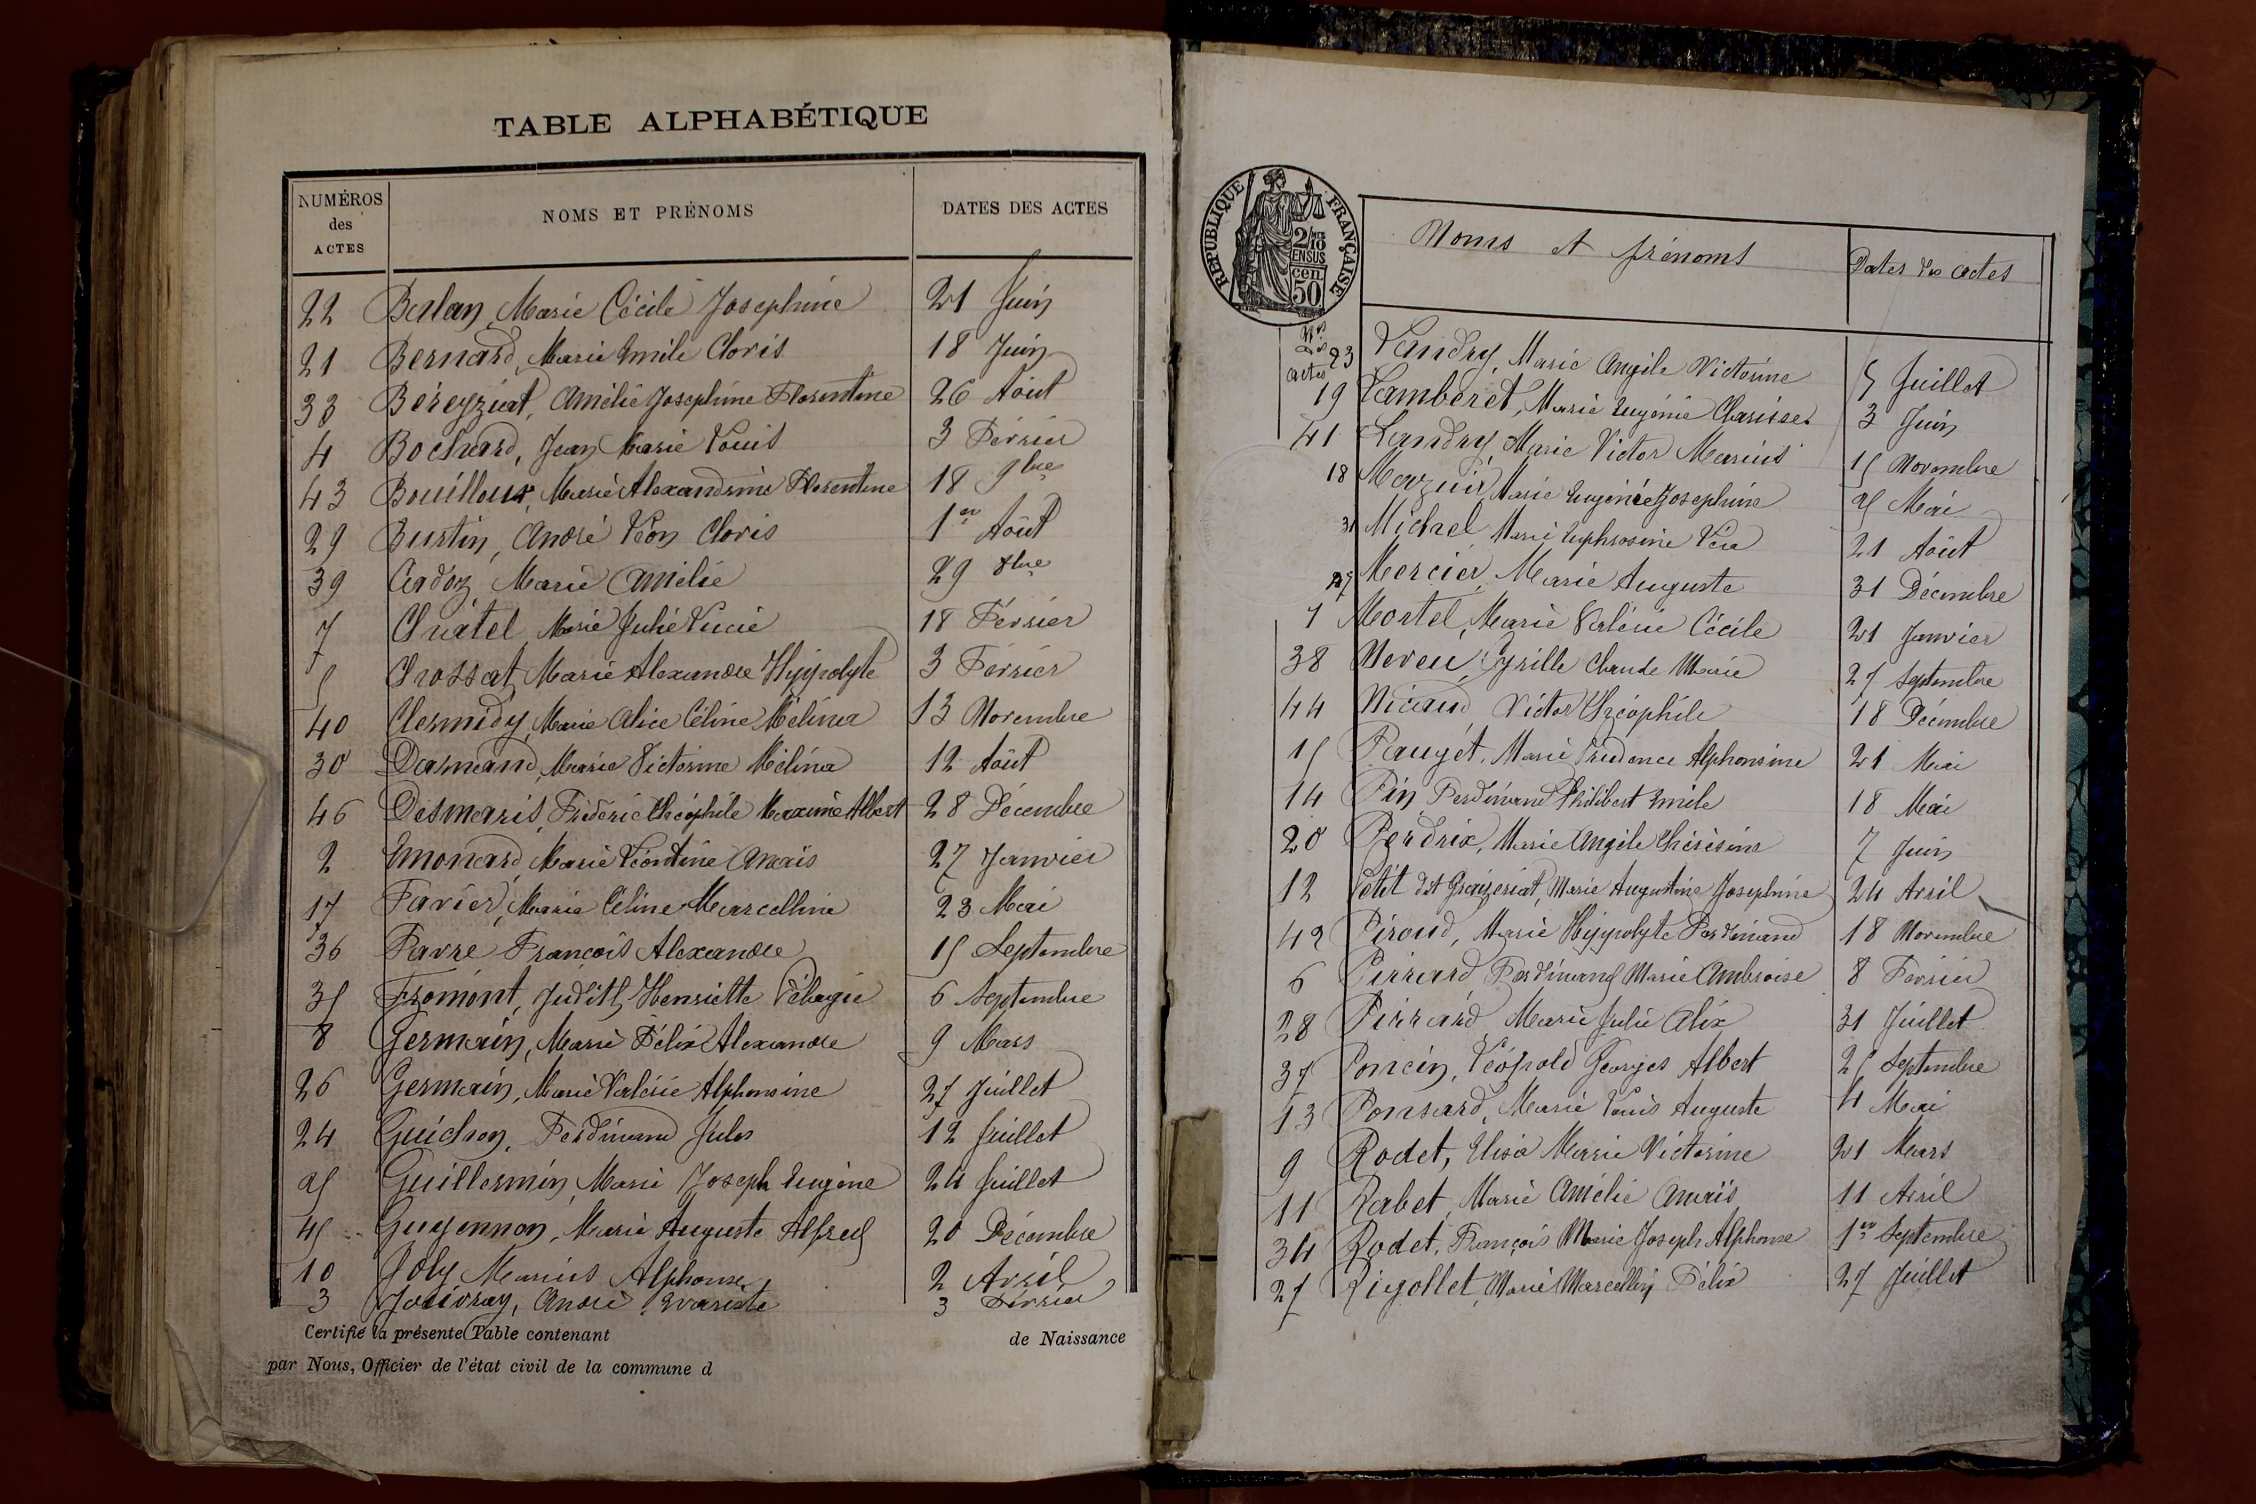 TABLE ALPHABÉTIQUE
NUMÉROS des ACTES NOMS ET PRÉNOMS DATES DES ACTES
22 Balan, Marie Cécile Josephine 21 Juin
21 Bernard, Marie Emile Cloris 18 Juin
33 Béreyziat, Amélie Josephine Florentine 26 Août
4 Bochard, Jean Marie Louis 3 Février
43 Bouilloux, Marie Alexandrine Florentine 18 9bre
29 Bustin, André Léon Cloris 1er Août
39 Cadoz, Marie Amélie 29 8bre
7 Chatel, Marie Julie Lucie 18 Février
5 Chossat, Marie Alexandre Hyppolyte 3 Février
40 Clermidy, Marie Alice Céline Mélina 13 Novembre
30 Darnand, Marie Victorine Mélina 12 Août
46 Desmaris, Fréderic Théophile Maxime Albert 28 Décembre
2 Emonard, Marie Léontine Anaïs 27 Janvier
17 Favier, Marie Céline Marcelline 23 Mai
36 Favre François Alexandre 15 Septembre
35 Fromont, Judith Henriette Pélagie 6 Septembre
8 Germain, Marie Félix Alexandre 9 Mars
26 Germain, Marie Valérie Alphonsine 27 Juillet
24 Guichon, Ferdinand Jules 12 Juillet
25 Guillermin, Marie Joseph Eugène 24 Juillet
45 Guyennon, Marie Auguste Alfred 20 Décembre
10 Joly Marius Alphonse 2 Avril
3 Jouvray, André Evariste 3 Février
Certifié la présente Table contenant de Naissance
par Nous, Officier de l'état civil de la commune d
RÉPUBLIQUE FRANÇAISE
2/10 EN SUS
50 cen
Nos des actes Noms et prénoms Dates des actes
23 Landry, Marie Angèle Victorine 5 Juillet
19 Lamberet, Marie Eugénie Clarisse 3 Juin
41 Landry, Marie Victor Marius 15 Novembre
18 Mazuir, Marie Eugénie Josephine 25 Mai
31 Michel Marie Euphrosine Léa 21 Août
Mercier, Marie Auguste 31 Décembre
1 Mortel, Marie Valérie Cécile 21 Janvier
38 Neveu, Cyrille Claude Marie 25 Septembre
44 Nicaud, Victor Théophile 18 Décembre
15 Pauget, Marie Prudence Alphonsine 21 Mai
14 Pin Ferdinand Philibert Emile 18 Mai
20 Perdrix, Marie Angèle Thérésine 7 Juin
12 Petit dit Graizeriat, Marie Augustine Josephine 24 Avril
42 Piroud, Marie Hyppolyte Ferdinand 18 Novembre
6 Pirrard, Ferdinand Marie Ambroise 8 Février
28 Pirrard, Marie Julie Alix 31 Juillet
37 Poncin, Léopold Georges Albert 25 Septembre
13 Ponsard, Marie Louis Auguste 4 Mai
9 Rodet, Elisa Marie Victorine 21 Mars
11 Rabet, Marie Amélie Anaïs 11 Avril
34 Rodet, François Marie Joseph Alphonse 1er Septembre
27 Rigollet, Marie Marcellin Félix 27 Juillet